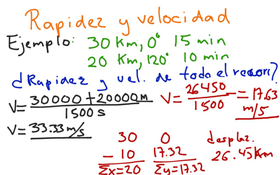 Rapidez y velocidad
Ejemplo: 30 Km, 0° 15 min
20 Km, 120° 10 min
¿Rapidez y vel. de todo el recorr?
V= 30000+20000m / 1500 s
V= 26450 / 1500 = 17.63 m/s
V= 33.33 m/s
30 0 desplaz.
-10 17.32 26.45 Km
Σx=20 Σy=17.32